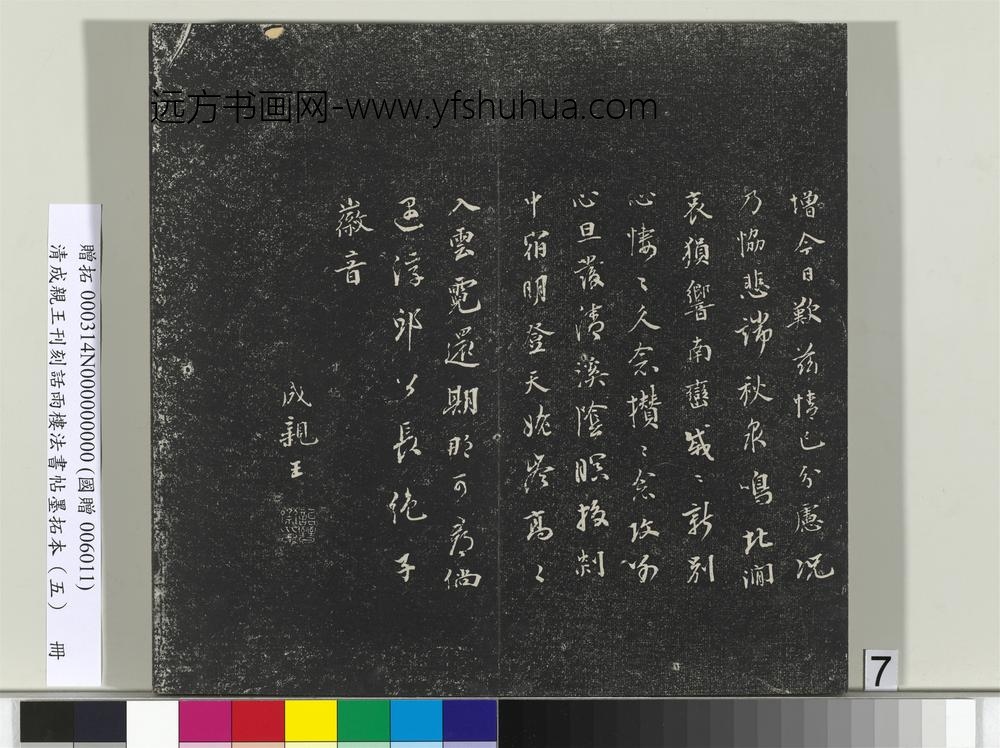 远方书画网-www.yfshuhua.com
增今日歎兹情已分慮况
乃恊悲端秋泉鳴北澗
哀猨響南巒戚〻新別
心悽〻久念攢〻念攻別
心旦發清溪陰暝投剡
中宿明登天姥岑高〻
入雲霓還期那可尋倘
遇浮邱公長絕子
徽音
成親王
贈拓 000314N000000000 (國贈 006011)
清成親王刊刻話雨樓法書帖墨拓本（五） 冊
7